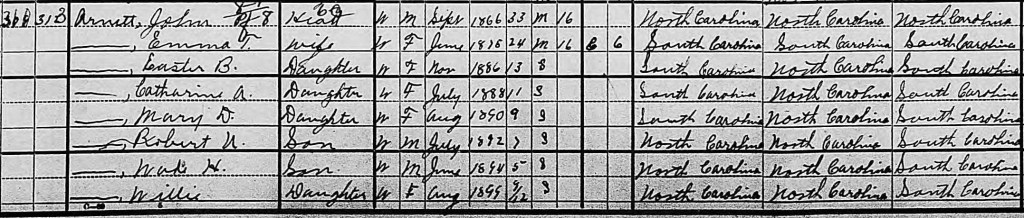 318 313 Arnett, John Head W M Sept 1866 33 M 16 North Carolina North Carolina North Carolina
——, Emma F. Wife W F June 1875 24 M 16 6 6 South Carolina South Carolina South Carolina
——, Easter B. Daughter W F Nov 1886 13 S South Carolina North Carolina South Carolina
——, Catharine A. Daughter W F July 1888 11 S South Carolina North Carolina South Carolina
——, Mary D. Daughter W F Aug 1890 9 S South Carolina North Carolina South Carolina
——, Robert N. Son W M July 1892 7 S North Carolina North Carolina South Carolina
——, Wade H. Son W M June 1894 5 S North Carolina North Carolina South Carolina
——, Willie Daughter W F Aug 1899 9/12 S North Carolina North Carolina South Carolina